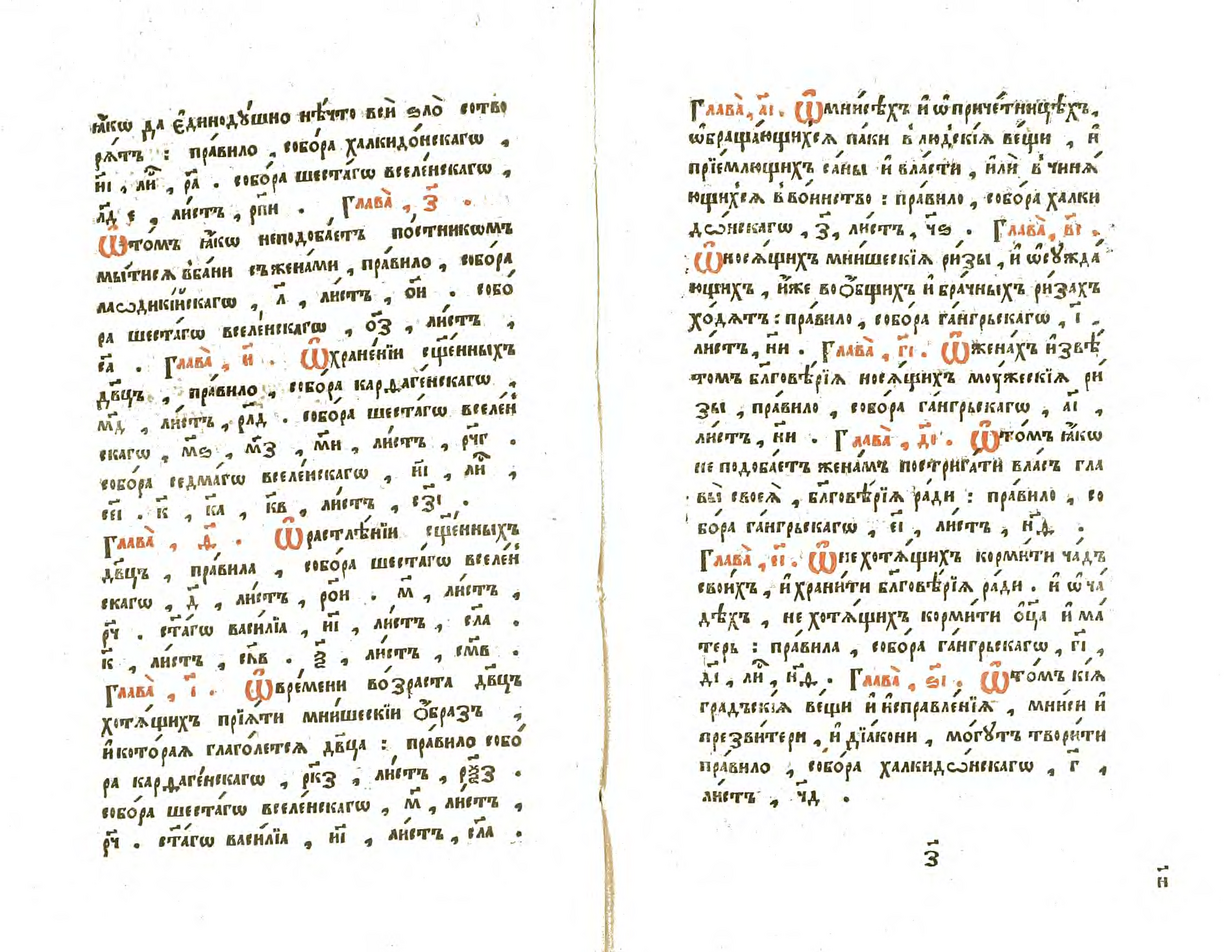 ꙗ҆́кѡ да є҆динодꙋ́шно нѣ́что всѝ ѕло̀ сотво
рѧ́тъ : пра́вило , собо́ра халкидо́нскагѡ ,
и҃і , ли́ , р҃а . собо́ра шеста́гѡ вселе́нскагѡ ,
л҃д є , ли́стъ , рп҃и . Глава̀ , з҃ .
Ѿтомъ ꙗ҆́кѡ неподоба́етъ по́стникомъ
мы́тисѧ вба́ни съжена́ми , пра́вило , собо́ра
лаѡдикі́йскагѡ , л҃ , ли́стъ , о҃и . собо́
ра шеста́гѡ вселе́нскагѡ , о҃з , ли́стъ ,
с҃а . Глава̀ , и҃ . Ѡ҆хране́нїи сщ҃е́нныхъ
дв҃цъ , пра́вило , собо́ра карѳаге́нскагѡ ,
м҃д , ли́стъ , рл҃д . собо́ра шеста́гѡ вселе́н
скагѡ , м҃ѕ , м҃з , м҃и , ли́стъ , рч҃г .
собо́ра седма́гѡ вселе́нскагѡ , и҃і , ли́ ,
се҃і . к҃ , к҃а , к҃в , ли́стъ , сз҃і .
Глава̀ , ѳ҃ . Ѡ҆растлѣ́нїи сщ҃е́нныхъ
дв҃цъ , пра́вила , собо́ра шеста́гѡ вселе́н
скагѡ , д҃ , ли́стъ , ро҃и . м҃ , ли́стъ ,
р҃ч . ст҃а́гѡ васи́лїа , и҃і , ли́стъ , сл҃а .
к҃ , ли́стъ , сл҃в . ѯ҃ , ли́стъ , см҃в .
Глава̀ , і҃ . Ѡ҆вре́мени во́зраста дв҃цъ
хотѧ́щихъ прїѧ́ти мни́шескїи ѻ҆́бразъ ,
и҆кото́раѧ глаго́летсѧ дв҃ца : пра́вило собо́
ра карѳаге́нскагѡ , рк҃з , ли́стъ , рѯ҃з .
собо́ра шеста́гѡ вселе́нскагѡ , м҃ , ли́стъ ,
р҃ч . ст҃а́гѡ васи́лїа , и҃і , ли́стъ , сл҃а .
Глава̀ , а҃і . Ѡ҆мнисѣ́хъ и҆ ѡ҆приче́тницѣхъ ,
ѡ҆браща́ющихсѧ па́ки в людскі́ѧ ве́щи , и҆
прїе́млющихъ са́ны и҆ вла́сти , и҆лѝ в чинѧ́
ющихсѧ в во́инство : пра́вило , собо́ра халки
дѡ́нскагѡ , з҃ , ли́стъ , ч҃ѕ . Глава̀ , в҃і .
Ѡ҆носѧ́щихъ мни́шескїѧ ри́зы , и҆ ѡ҆сꙋжда́
ющихъ , и҆́же во ѻ҆́бщихъ и҆ бра́чныхъ ри́захъ
хо́дѧтъ : пра́вило , собо́ра га́нгрьскагѡ , і҃ ,
ли́стъ , н҃и . Глава̀ , г҃і . Ѡ҆жена́хъ и҆звѣ́
томъ бл҃говѣ́рїѧ носѧ́щихъ моу́жескїѧ ри́
зы , пра́вило , собо́ра га́нгрьскагѡ , а҃і ,
ли́стъ , н҃и . Глава̀ , д҃і . Ѿто́мъ ꙗ҆́кѡ
не подоба́етъ жена́мъ пострига́ти вла́съ гла
вы̀ своеѧ̀ , бл҃говѣ́рїѧ ра́ди : пра́вило , со
бо́ра га́нгрьскагѡ , е҃і , ли́стъ , н҃ѳ .
Глава̀ , е҃і . Ѡ҆нехотѧ́щихъ корми́ти ча́дъ
свои́хъ , и҆ храни́ти бл҃говѣ́рїѧ ра́ди . и҆ ѡ҆ ча́
дѣхъ , не хотѧ́щихъ корми́ти ѻ҆ц҃а̀ и҆ ма́
терь : пра́вила , собо́ра га́нгрьскагѡ , г҃і ,
д҃і , ли́ , н҃ѳ . Глава̀ , ѕ҃і . Ѿто́мъ кі́ѧ
гра́дъскїѧ ве́щи и҆ и҆справле́нїѧ , мни́си и҆
презви́тери , и҆ дїа́кони , мо́гꙋтъ твори́ти
пра́вило , собо́ра халкидѡ́нскагѡ , г҃ ,
ли́стъ , ч҃д .
з҃
и҃